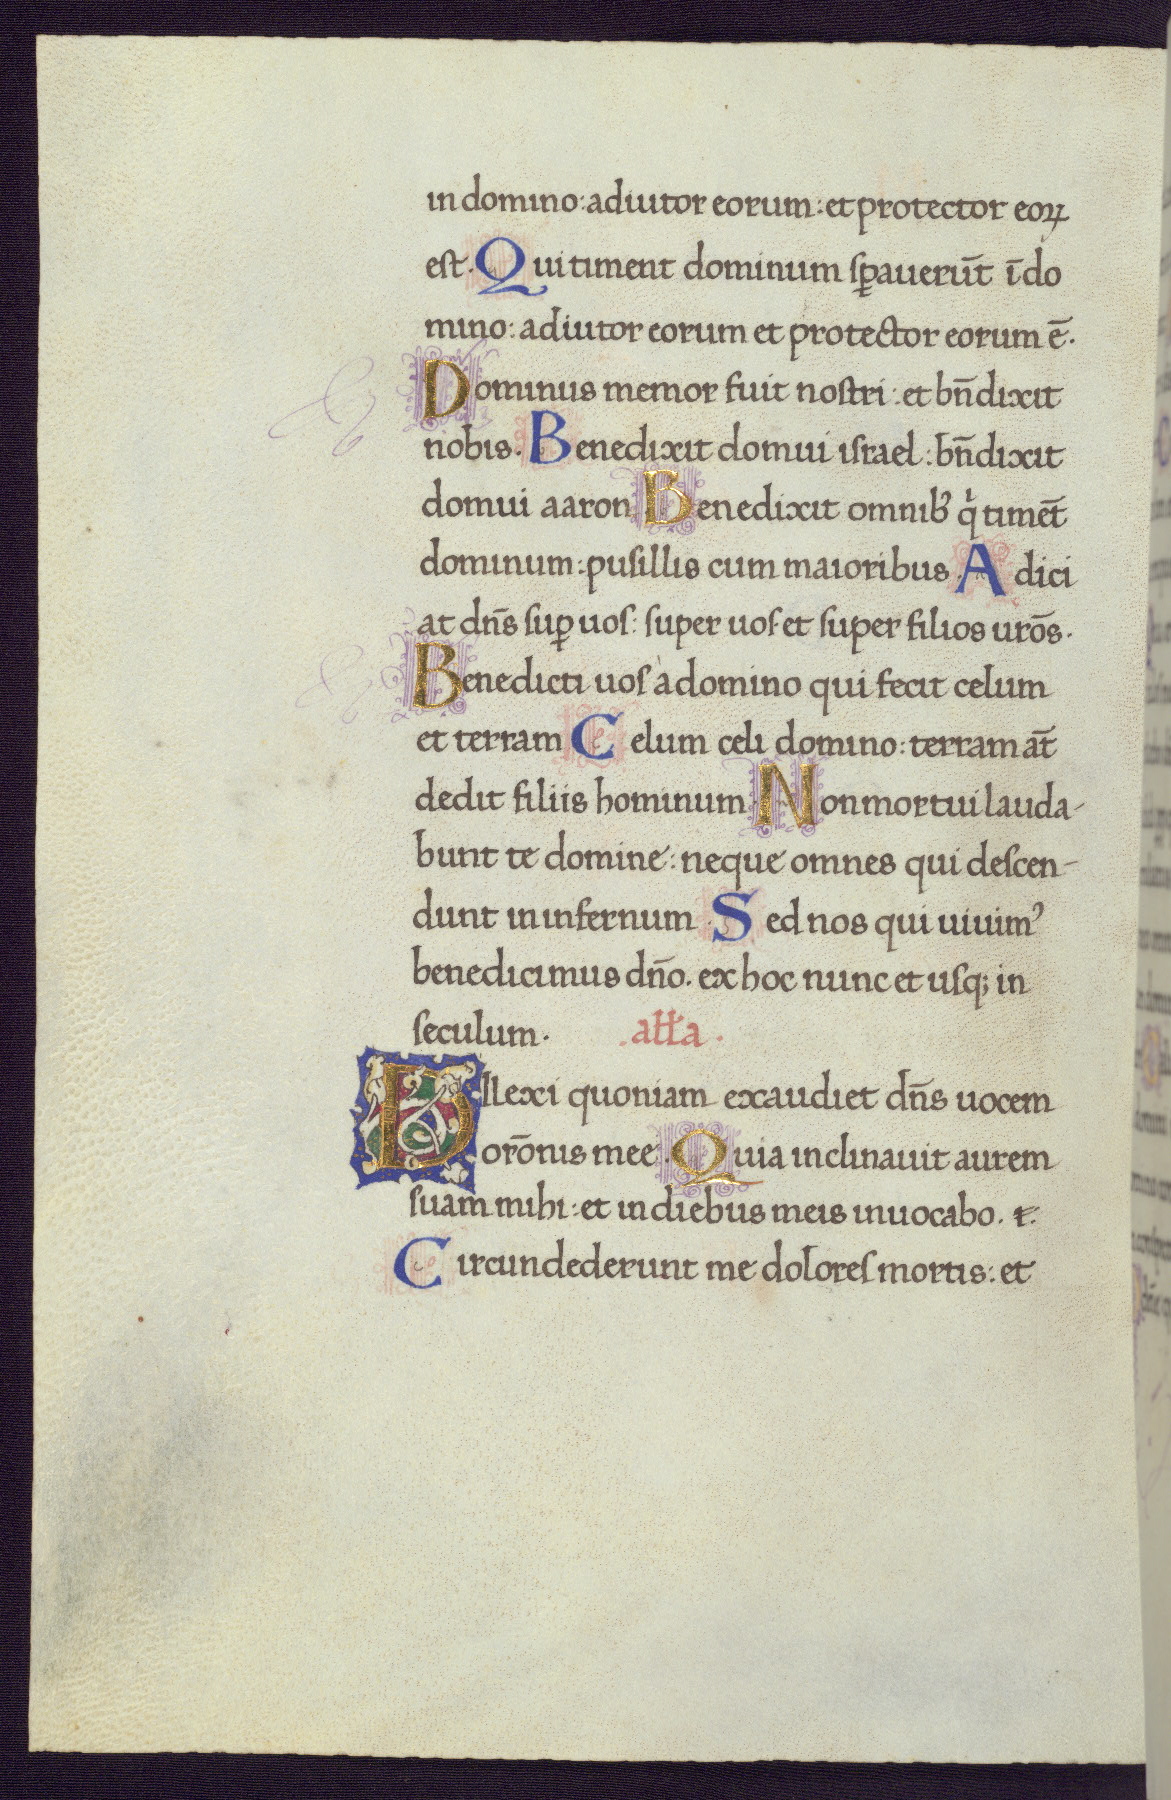 in domino: adiutor eorum: et protector eoꝝ
est. Qui timent dominum sꝑauerūt ī do
mino: adiutor eorum et protector eorum ē.
Dominus memor fuit nostri: et bn̄dixit
nobis. Benedixit domui israel: bn̄dixit
domui aaron Benedixit omnibꝰ qͥ timēt
dominum: pusillis cum maioribus. Adici
at dn̄s suꝑ uos: super uos et super filios uro̅s.
Benedicti uos a domino qui fecit celum
et terram Celum celi domino: terram at̄
dedit filiis hominum Non mortui lauda-
bunt te domine: neque omnes qui descen-
dunt in infernum. Sed nos qui uiuimꝰ
benedicimus dn̄o. ex hoc nunc et usqꝫ in
seculum. .ał̄ła.
Dilexi quoniam exaudiet dn̄s uocem
oro̅nis mee. Quia inclinauit aurem
suam mihi: et in diebus meis inuocabo. t.
Circundederunt me dolores mortis: et